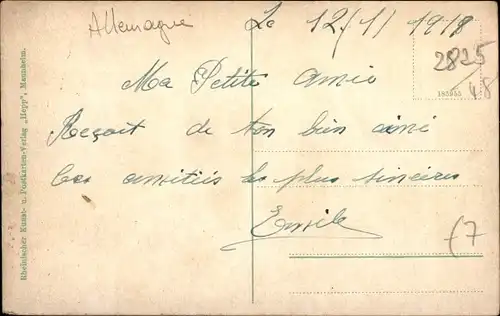 Allemagne
Le 12/1/1918
2825
48
185955
Ma Petite amie
Reçoit de ton bien aimé
les amitiés les plus sincères
Emile
Rheinischer Kunst- u. Postkarten-Verlag „Hepp", Mannheim.